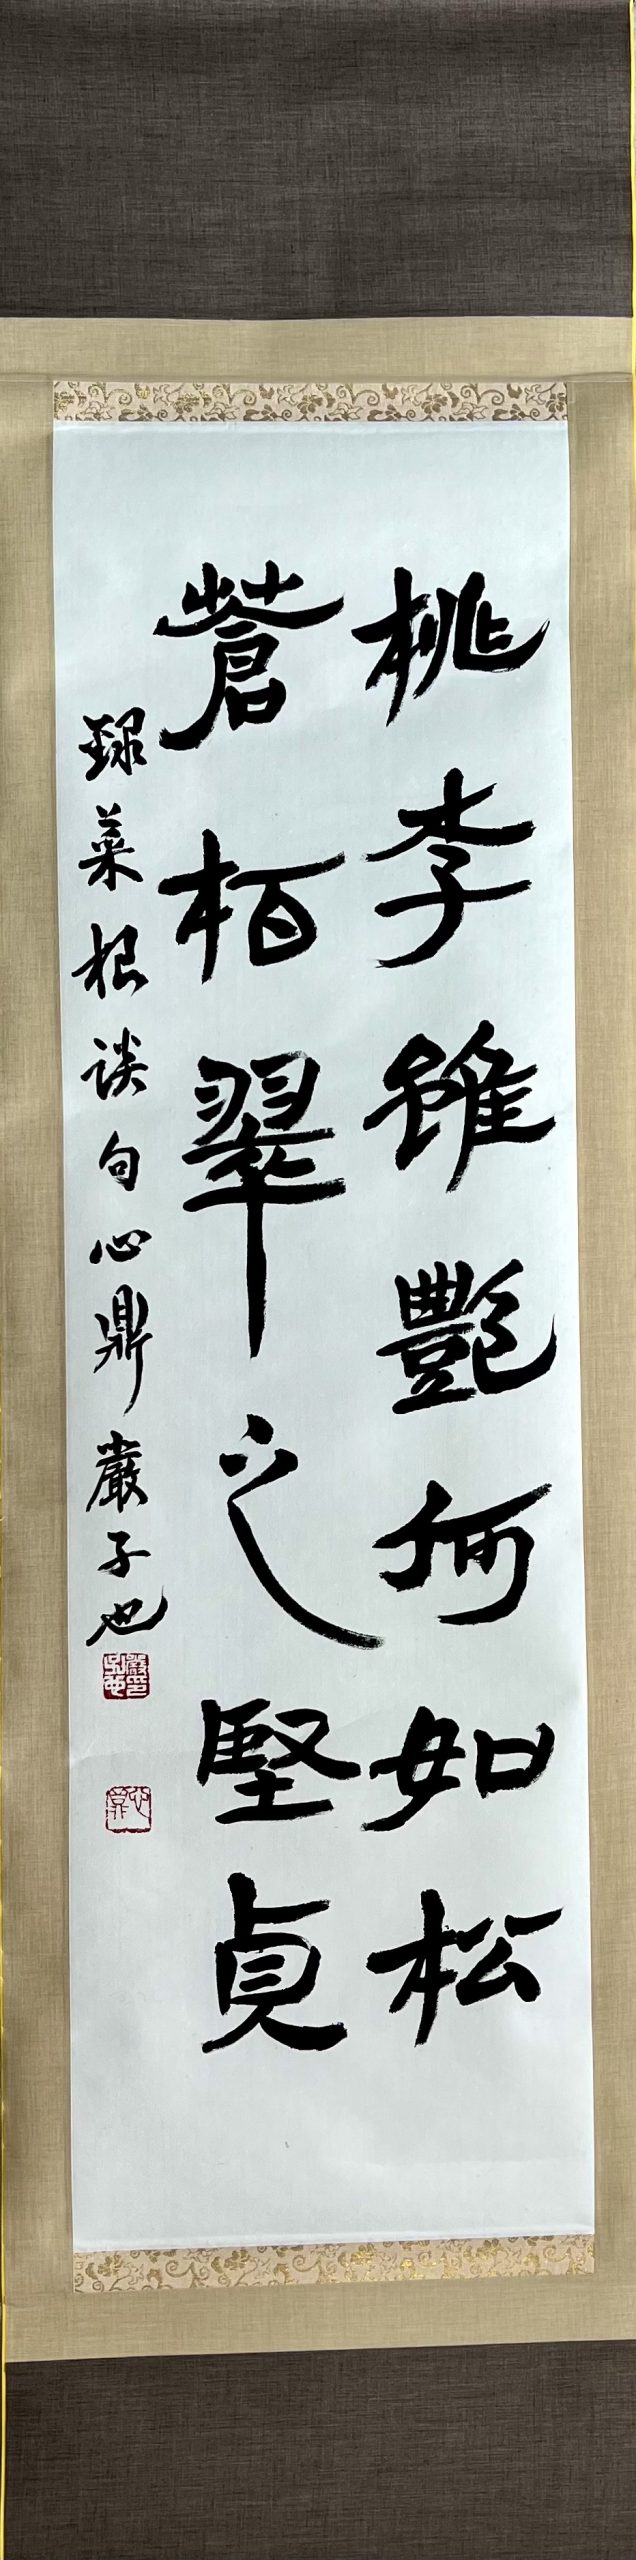 桃李雖艷何如松
蒼栢翠之堅貞
録菜根談句心鼎嚴子也